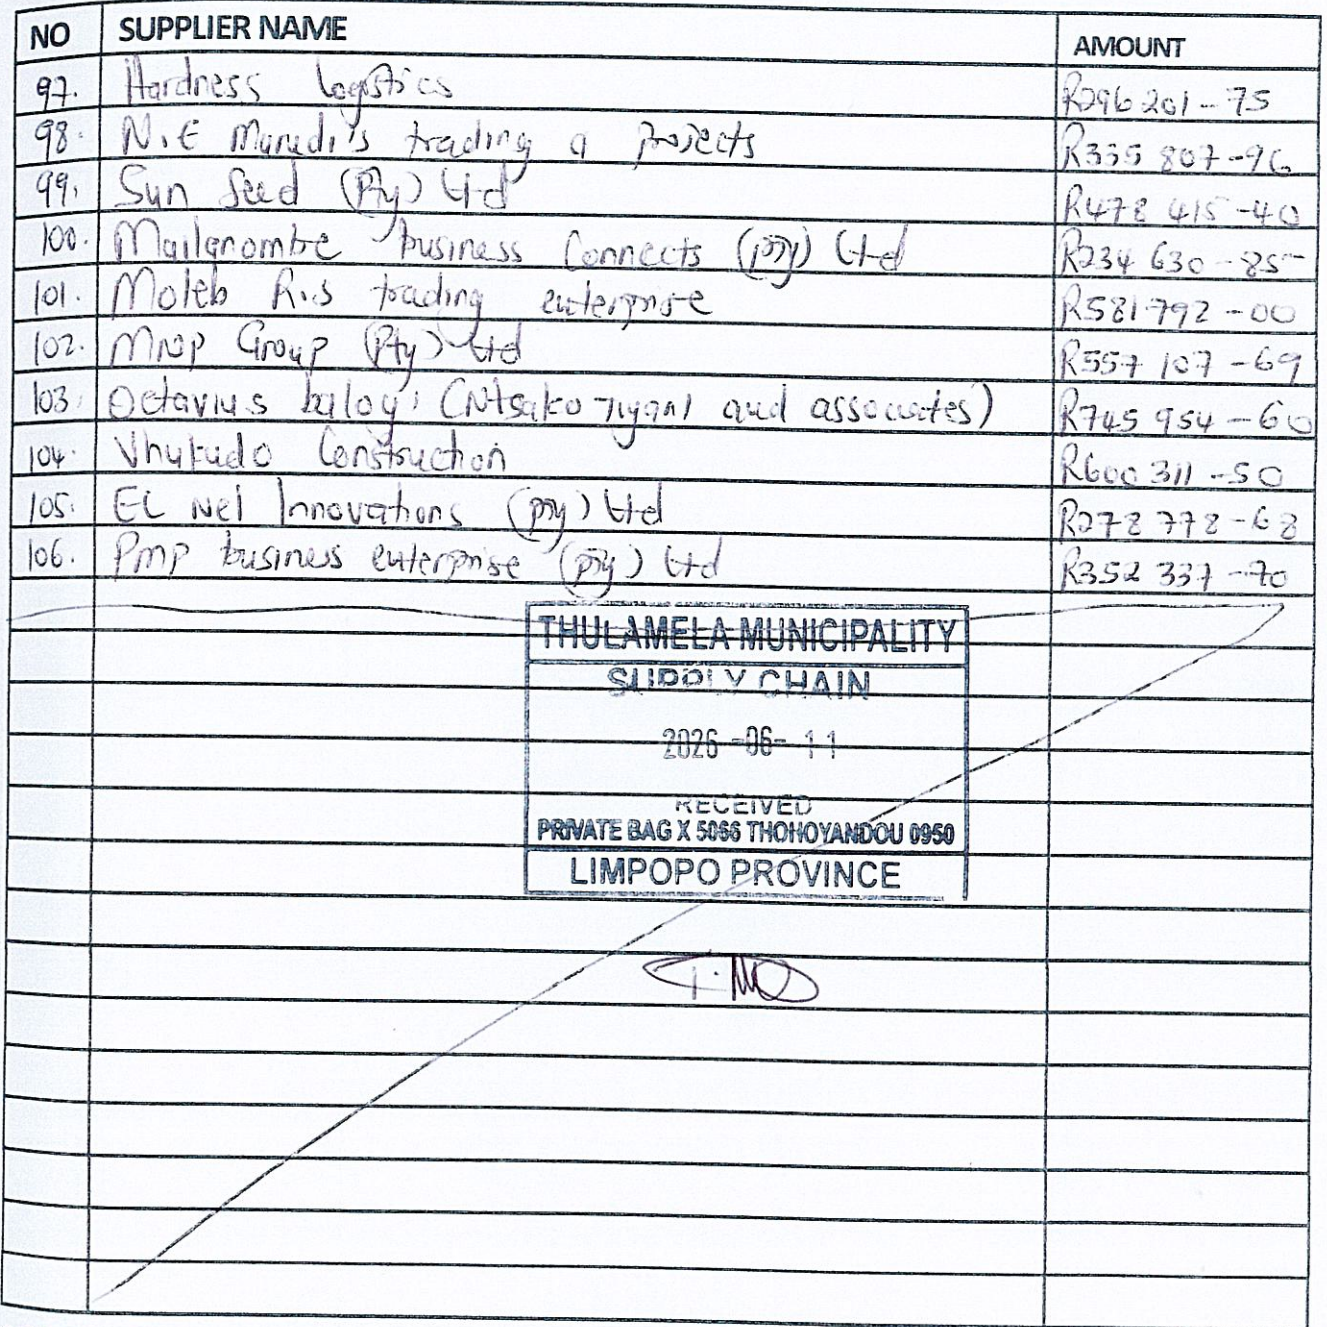 NO SUPPLIER NAME AMOUNT
97. Hardness logistics R296 201-75
98. N.E trading a projects R335 807-96
99. Sun Seed (Pty) Ltd R478 415-40
100. business Connects (pty) Ltd R234 630-85
101. Moleb R.S trading enterprise R581 792-00
102. Group (Pty) Ltd R557 107-69
103. Octavius baloyi (Ntsako and associates) R745 954-60
104. Construction R600 311-50
105. EL Nel Innovations (pty) Ltd R278 778-68
106. Pmp business enterprise (pty) Ltd R352 337-70
THULAMELA MUNICIPALITY
SUPPLY CHAIN
2026-06-11
RECEIVED
PRIVATE BAG X 5066 THOHOYANDOU 0950
LIMPOPO PROVINCE